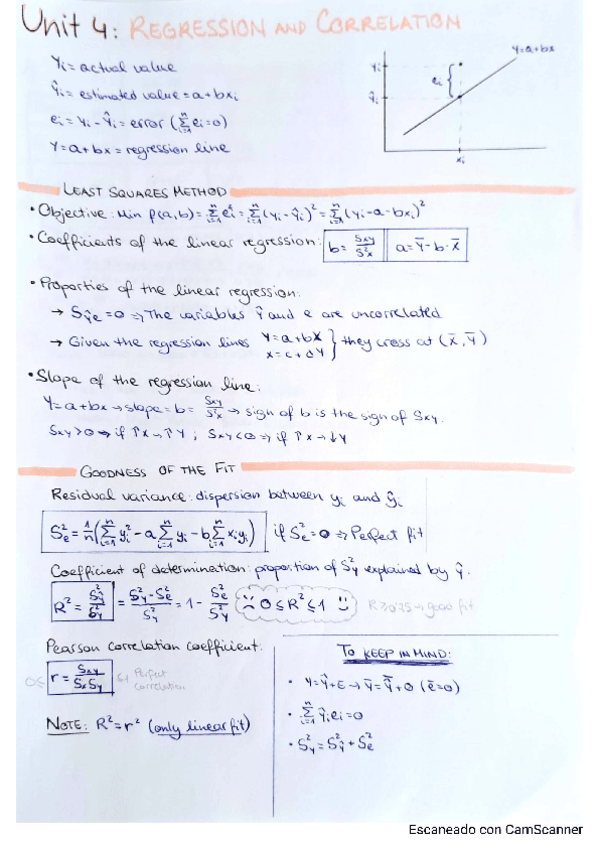 Unit 4: REGRESSION AND CORRELATION
yᵢ = actual value
ŷᵢ = estimated value = a+bxᵢ
eᵢ = yᵢ - ŷᵢ = error (Σⁿᵢ₌₁ eᵢ=0)
Y=a+bx = regression line
Y=a+bx
yᵢ
eᵢ
ŷᵢ
xᵢ
LEAST SQUARES METHOD
• Objective: Min f(a,b) = Σⁿᵢ₌₁ eᵢ² = Σⁿᵢ₌₁ (yᵢ-ŷᵢ)² = Σⁿᵢ₌₁ (yᵢ-a-bxᵢ)²
• Coefficients of the linear regression: b = Sxy/S²x a = Ȳ-b·X̄
• Properties of the linear regression:
→ Sŷe = 0 ⇒ The variables Ŷ and e are uncorrelated
→ Given the regression lines Y=a+bX X=c+dY } they cross at (X̄, Ȳ)
• Slope of the regression line:
Y=a+bx → slope = b = Sxy/S²x → sign of b is the sign of Sxy.
Sxy>0 ⇒ if ↑X → ↑Y ; Sxy<0 ⇒ if ↑X → ↓Y
GOODNESS OF THE FIT
Residual variance: dispersion between yᵢ and ŷᵢ
S²e = 1/n (Σⁿᵢ₌₁ yᵢ² - a Σⁿᵢ₌₁ yᵢ - b Σⁿᵢ₌₁ xᵢyᵢ) if S²e = 0 ⇒ Perfect fit
Coefficient of determination: proportion of S²y explained by ŷ.
R² = S²ŷ/S²y = (S²y-S²e)/S²y = 1 - S²e/S²y 0≤R²≤1 R²≥0'75 → good fit
Pearson correlation coefficient:
r = Sxy/SxSy ≤1 Perfect correlation
NOTE: R²=r² (only linear fit)
TO KEEP IN MIND:
• Y=Ŷ+e → Ȳ=Ŷ̄+0 (ē=0)
• Σⁿᵢ₌₁ ŷᵢeᵢ=0
• S²y = S²ŷ + S²e
Escaneado con CamScanner